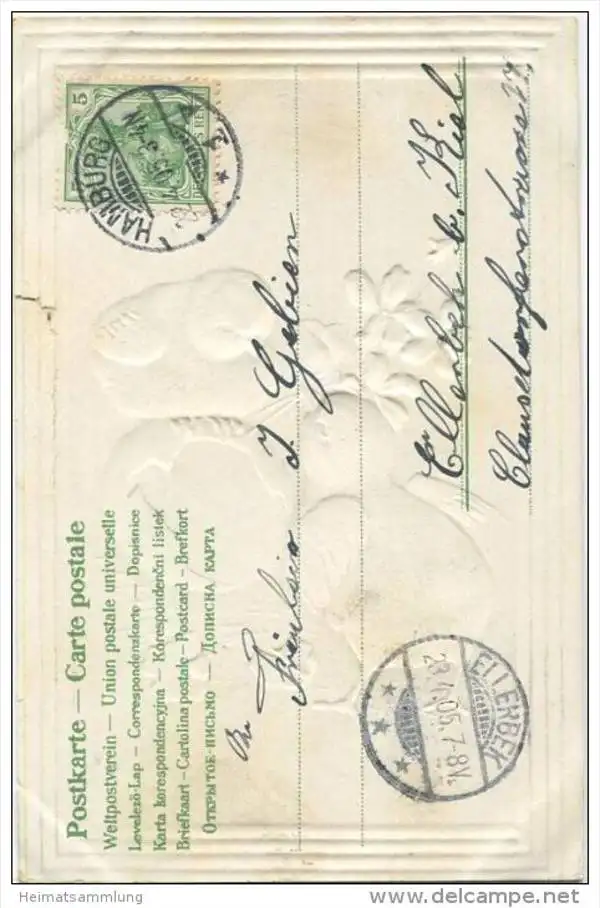 Postkarte — Carte postale
Weltpostverein — Union postale universelle
Levelező-Lap — Correspondenzkarte — Dopisnice
Karta korespondencyjna — Kórespondenční listek
Briefkaart — Cartolina postale — Postcard — Brefkort
Открытое-письмо — Дописна карта
5
HAMBURG
Fräulein J Gebien
Ellerbek b. Kiel
ELLERBEK
28.4.05.7-8V.
Heimatsammlung
delcampe.net